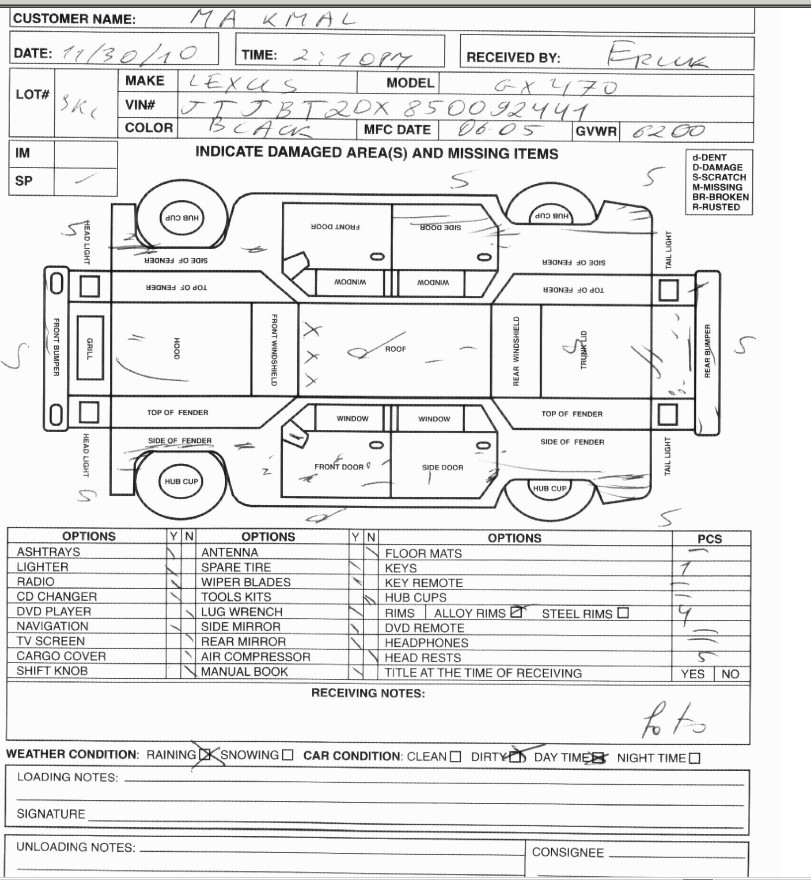 CUSTOMER NAME: MA KMAL
DATE: 11/30/10 TIME: 2:10PM RECEIVED BY:
LOT# MAKE LEXUS MODEL GX470
VIN# JTJBT20X850092441
COLOR BLACK MFC DATE 06.05 GVWR 6200
IM
SP
INDICATE DAMAGED AREA(S) AND MISSING ITEMS
d-DENT
D-DAMAGE
S-SCRATCH
M-MISSING
BR-BROKEN
R-RUSTED
S S
HUB CUP FRONT DOOR SIDE DOOR HUB CUP
S HEAD LIGHT SIDE OF FENDER SIDE OF FENDER TAIL LIGHT
TOP OF FENDER WINDOW WINDOW TOP OF FENDER
S FRONT BUMPER GRILL HOOD FRONT WINDSHIELD X X X d ROOF REAR WINDSHIELD S TRUNK LID REAR BUMPER S
TOP OF FENDER WINDOW WINDOW TOP OF FENDER
HEAD LIGHT SIDE OF FENDER SIDE OF FENDER TAIL LIGHT
HUB CUP FRONT DOOR SIDE DOOR HUB CUP
S d S
OPTIONS Y N OPTIONS Y N OPTIONS PCS
ASHTRAYS ANTENNA FLOOR MATS
LIGHTER SPARE TIRE KEYS 1
RADIO WIPER BLADES KEY REMOTE
CD CHANGER TOOLS KITS HUB CUPS
DVD PLAYER LUG WRENCH RIMS ALLOY RIMS STEEL RIMS 4
NAVIGATION SIDE MIRROR DVD REMOTE
TV SCREEN REAR MIRROR HEADPHONES
CARGO COVER AIR COMPRESSOR HEAD RESTS 5
SHIFT KNOB MANUAL BOOK TITLE AT THE TIME OF RECEIVING YES NO
RECEIVING NOTES:
WEATHER CONDITION: RAINING SNOWING CAR CONDITION: CLEAN DIRTY DAY TIME NIGHT TIME
LOADING NOTES:
SIGNATURE
UNLOADING NOTES: CONSIGNEE